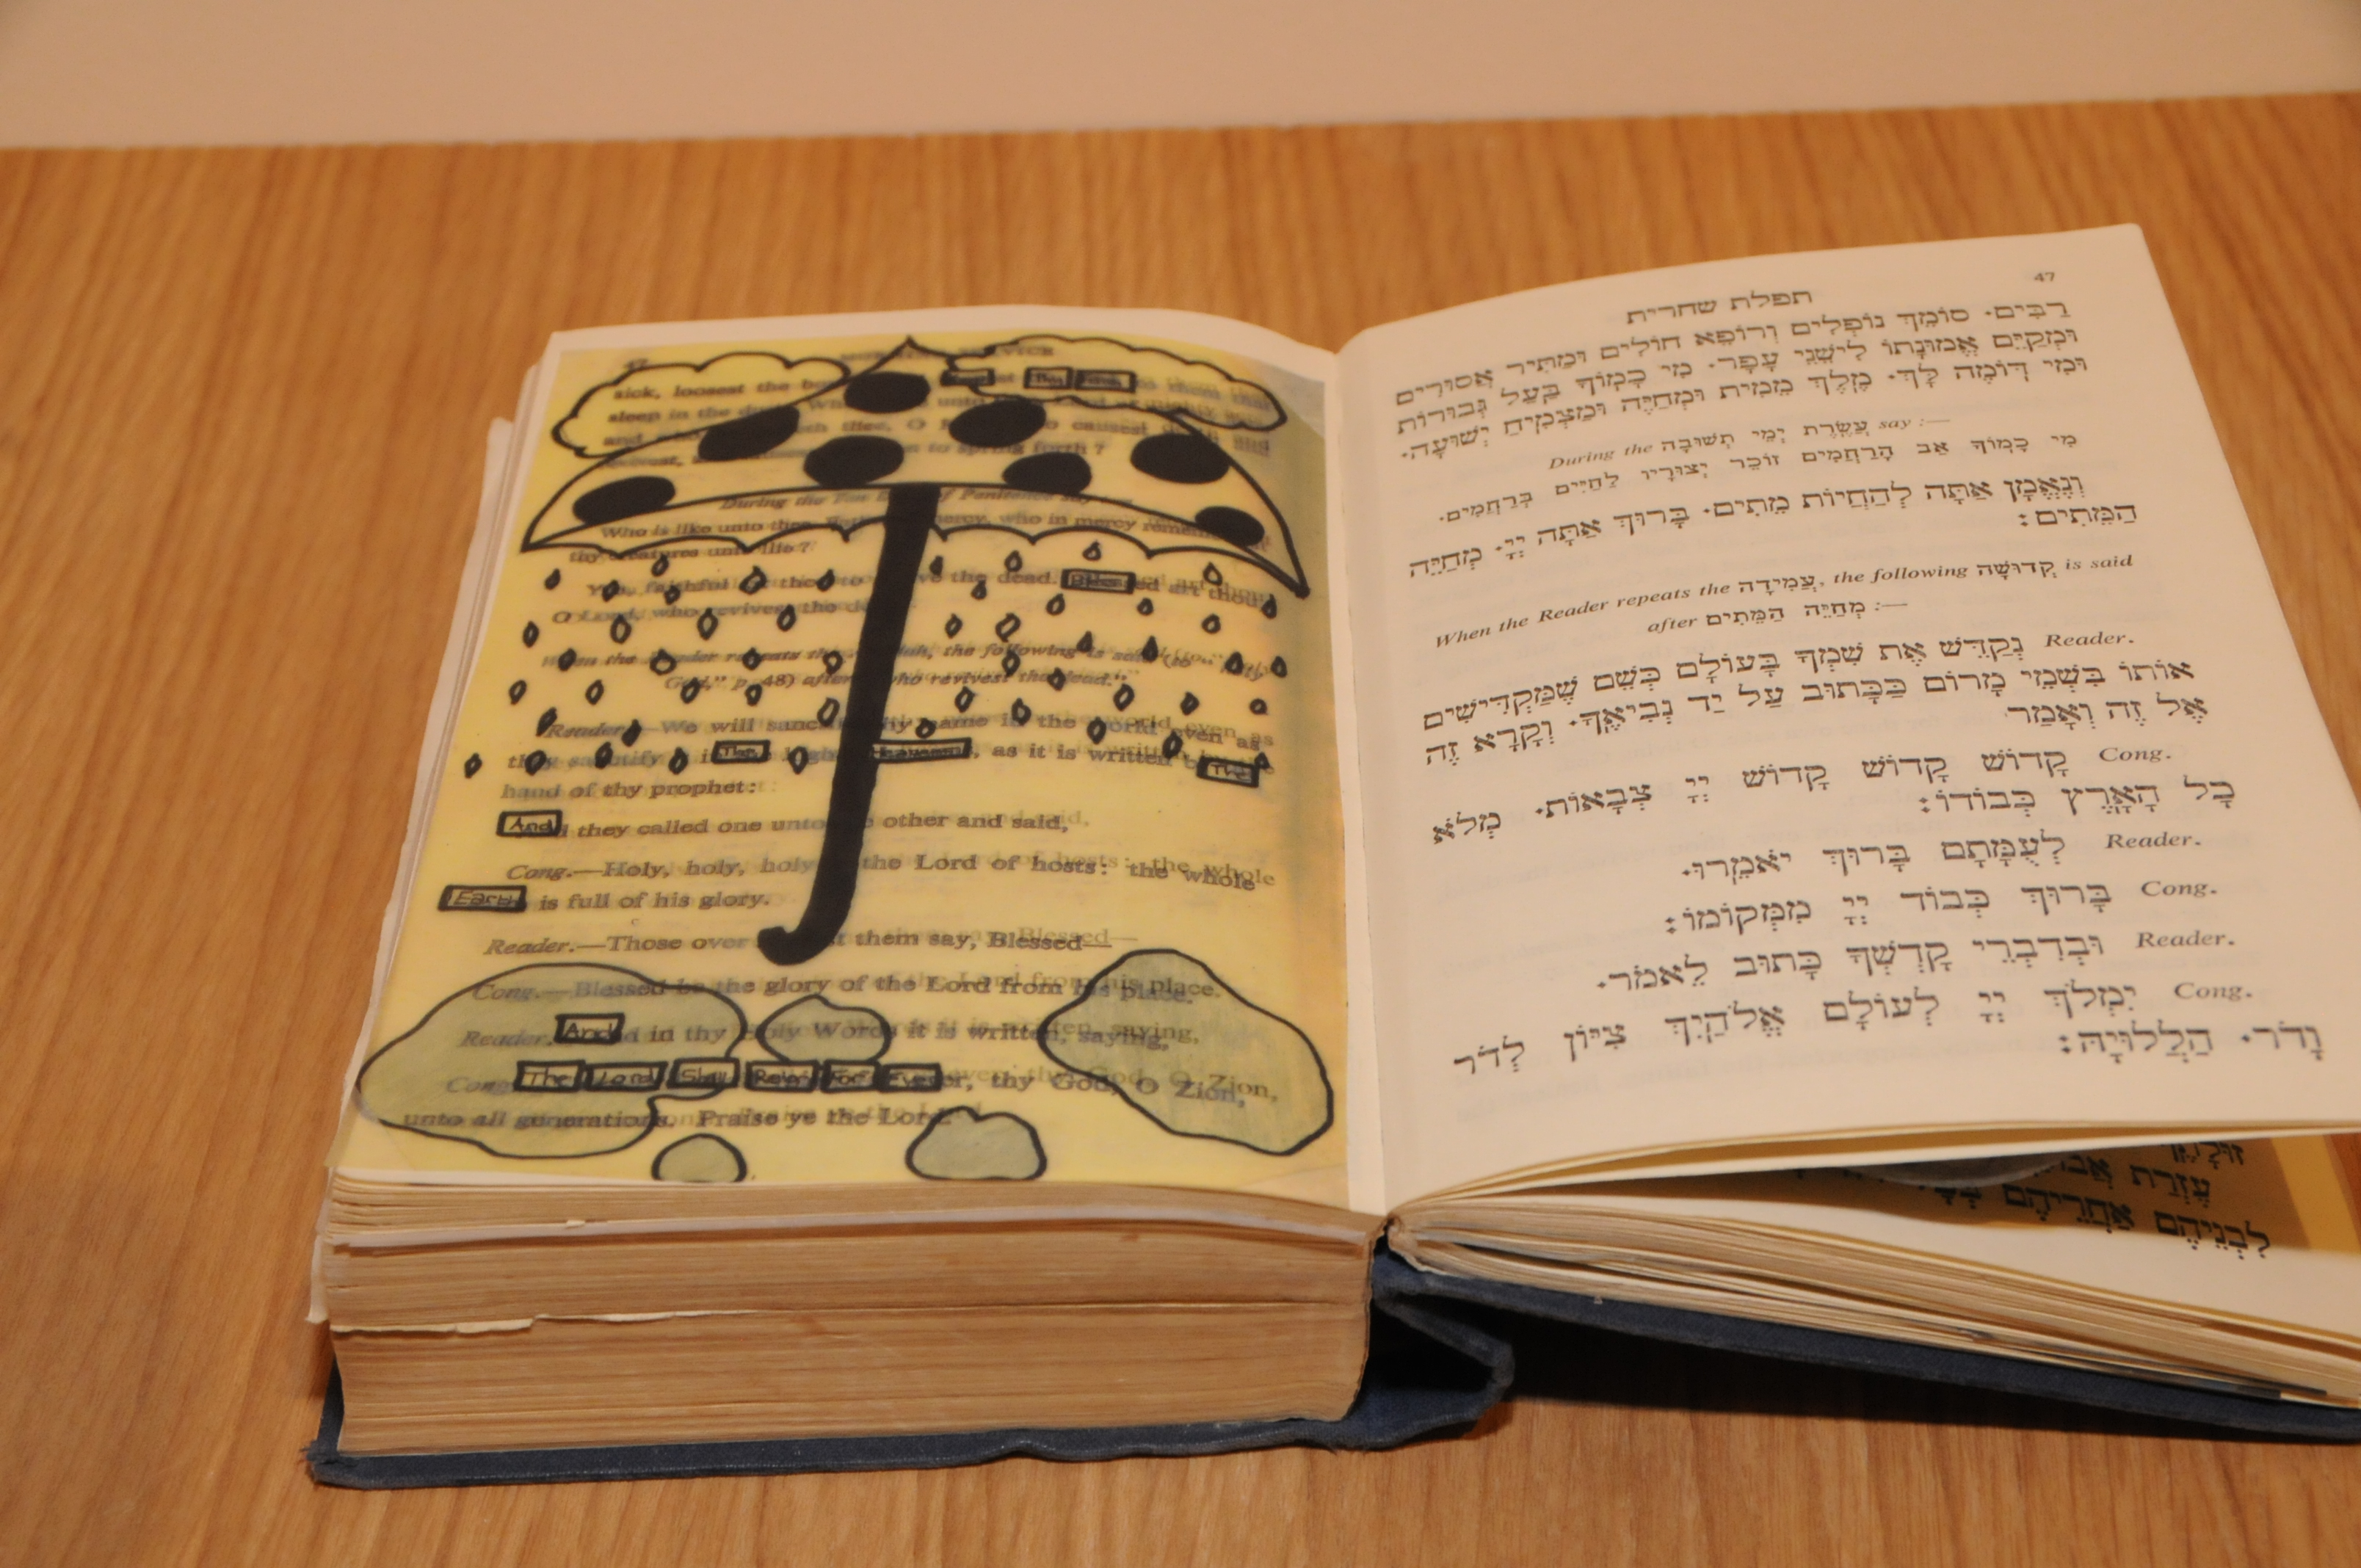 sick, loosest the
sleep in the
and
to spring forth ?
During the Ten of Penitence say :—
Who is like unto thee, mercy, who in mercy
thy creatures unto life ?
Yea, faithful thou to the dead. Blessed art thou,
O Lord, who revivest the
When the Reader repeats the the following is said (to "Holy
God," p. 48) after who revivest the dead."
Reader.—We will thy name in the world even as
they sanctify in The heavens, as it is written The
hand of thy prophet:
And they called one unto other and said,
Cong.—Holy, holy, holy the Lord of hosts: the whole
Earth is full of his glory.
Reader.—Those over them say, Blessed—
Cong.—Blessed be the glory of the Lord from his place.
Reader. And in thy Holy Words it is written, saying,
Cong. The Lord Shall Reign For Ever, thy God, O Zion,
unto all generations. Praise ye the Lord.
47
תפלת שחרית
רַבִּים. סוֹמֵךְ נוֹפְלִים וְרוֹפֵא חוֹלִים וּמַתִּיר אֲסוּרִים
וּמְקַיֵּם אֱמוּנָתוֹ לִישֵׁנֵי עָפָר. מִי כָמוֹךָ בַּעַל גְּבוּרוֹת
וּמִי דּוֹמֶה לָּךְ. מֶלֶךְ מֵמִית וּמְחַיֶּה וּמַצְמִיחַ יְשׁוּעָה.
During the עֲשֶׂרֶת יְמֵי תְשׁוּבָה say :—
מִי כָמוֹךָ אַב הָרַחֲמִים זוֹכֵר יְצוּרָיו לַחַיִּים בְּרַחֲמִים.
וְנֶאֱמָן אַתָּה לְהַחֲיוֹת מֵתִים. בָּרוּךְ אַתָּה יְיָ. מְחַיֵּה
הַמֵּתִים:
When the Reader repeats the עֲמִידָה, the following קְדוּשָּׁה is said
after מְחַיֵּה הַמֵּתִים :—
Reader. נְקַדֵּשׁ אֶת שִׁמְךָ בָּעוֹלָם כְּשֵׁם שֶׁמַּקְדִּישִׁים
אוֹתוֹ בִּשְׁמֵי מָרוֹם כַּכָּתוּב עַל יַד נְבִיאֶךָ. וְקָרָא זֶה
אֶל זֶה וְאָמַר
Cong. קָדוֹשׁ קָדוֹשׁ קָדוֹשׁ יְיָ צְבָאוֹת. מְלֹא
כָל הָאָרֶץ כְּבוֹדוֹ:
Reader. לְעֻמָּתָם בָּרוּךְ יֹאמֵרוּ.
Cong. בָּרוּךְ כְּבוֹד יְיָ מִמְּקוֹמוֹ:
Reader. וּבְדִבְרֵי קָדְשְׁךָ כָּתוּב לֵאמֹר.
Cong. יִמְלֹךְ יְיָ לְעוֹלָם אֱלֹהַיִךְ צִיּוֹן לְדֹר
וָדֹר. הַלְלוּיָהּ:
עֶזְרַת
לִבְנֵיהֶם אַחֲרֵיהֶם